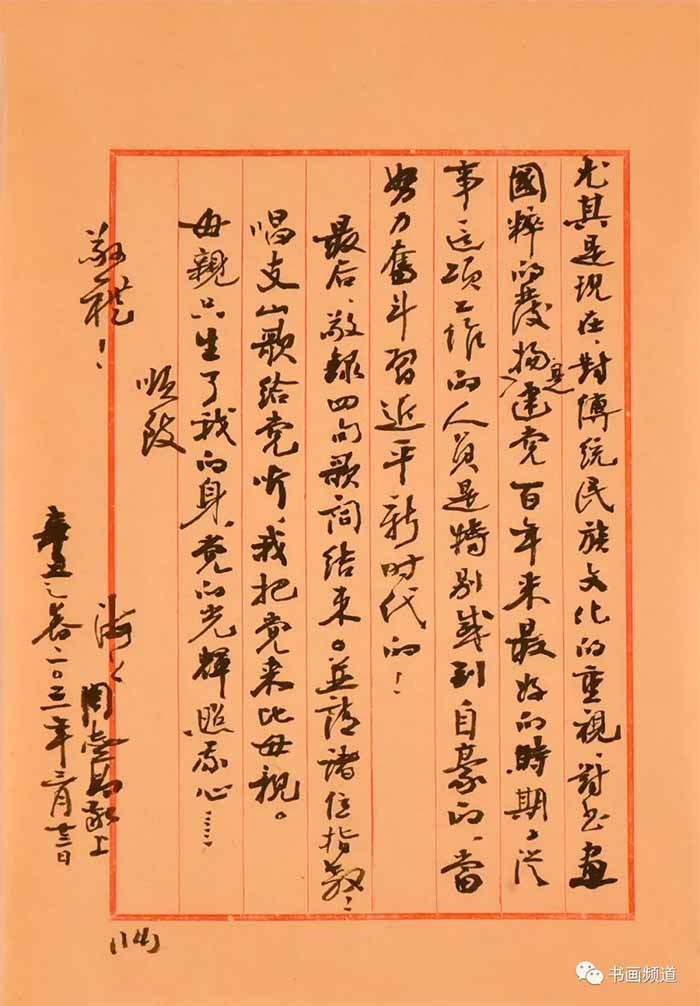 尤其是現在、對傳統民族文化的重視、對书画
國粹的發揚、是建党百年来最好的時期、從
事這项工作的人員是特别感到自豪的、當
努力奮斗習近平新时代的！
最后、敬録四句歌詞结束。並請諸位指教！
唱支山歌给党听、我把党来比母親。
母親只生了我的身、党的光輝照我心……
順致
敬禮！
海上 周志高敬上
辛丑之春、二〇二一年三月
(14)
书画频道